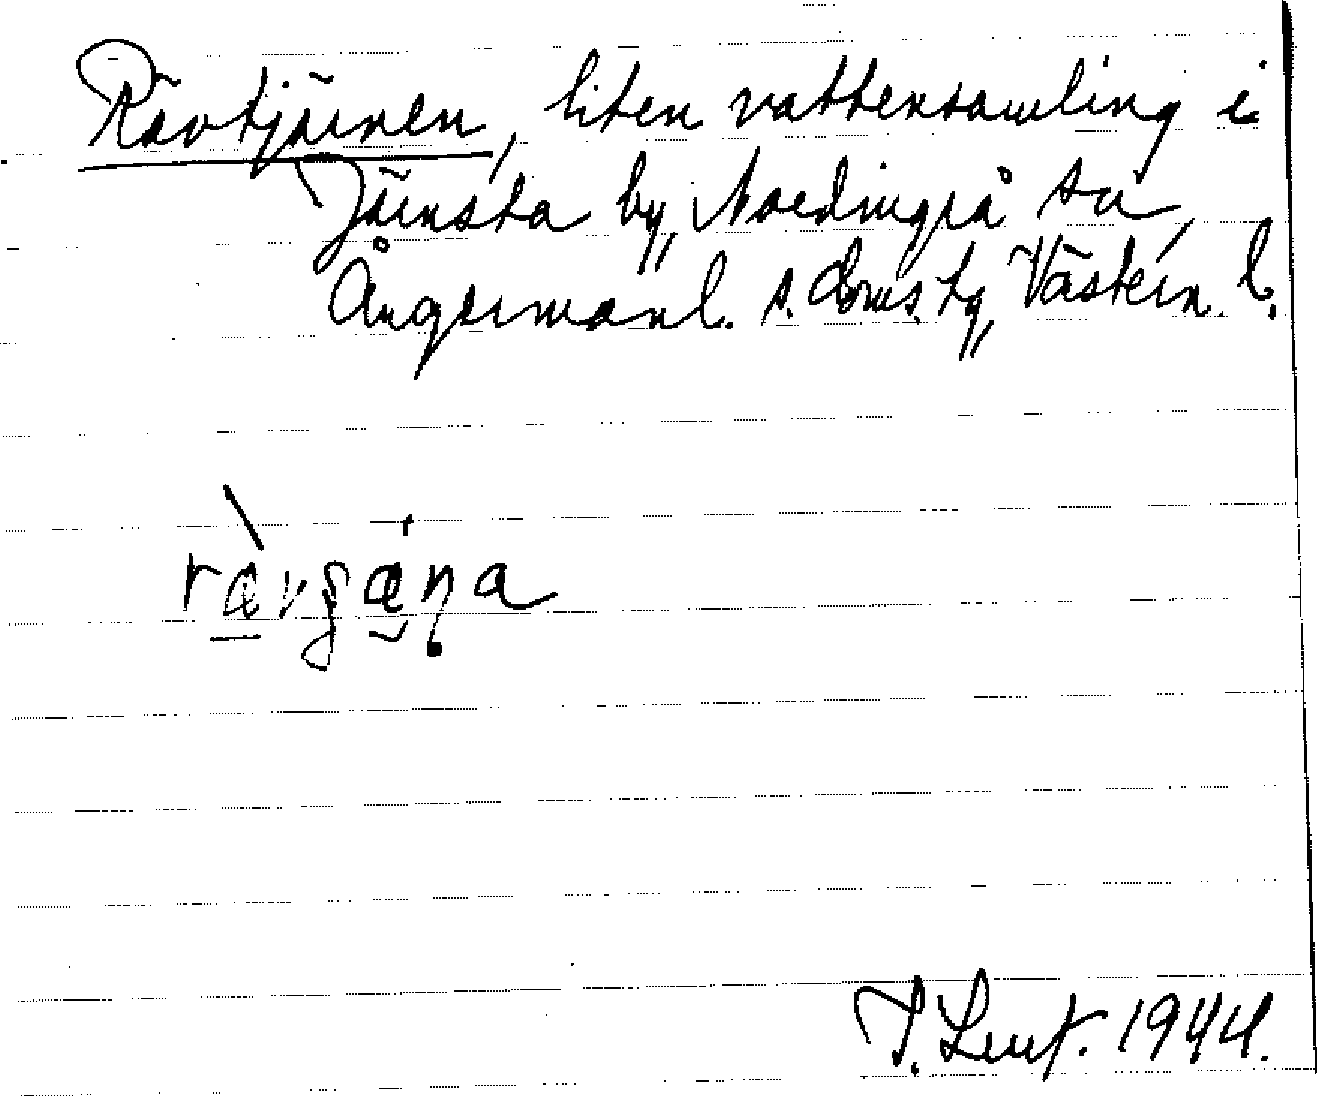 Rävtjärnen, liten vattensamling i
Järnsta by, Nordingrå sn,
Ångermanl. s. doms. tg, Västern. l.
rævʃæɳa
1944.